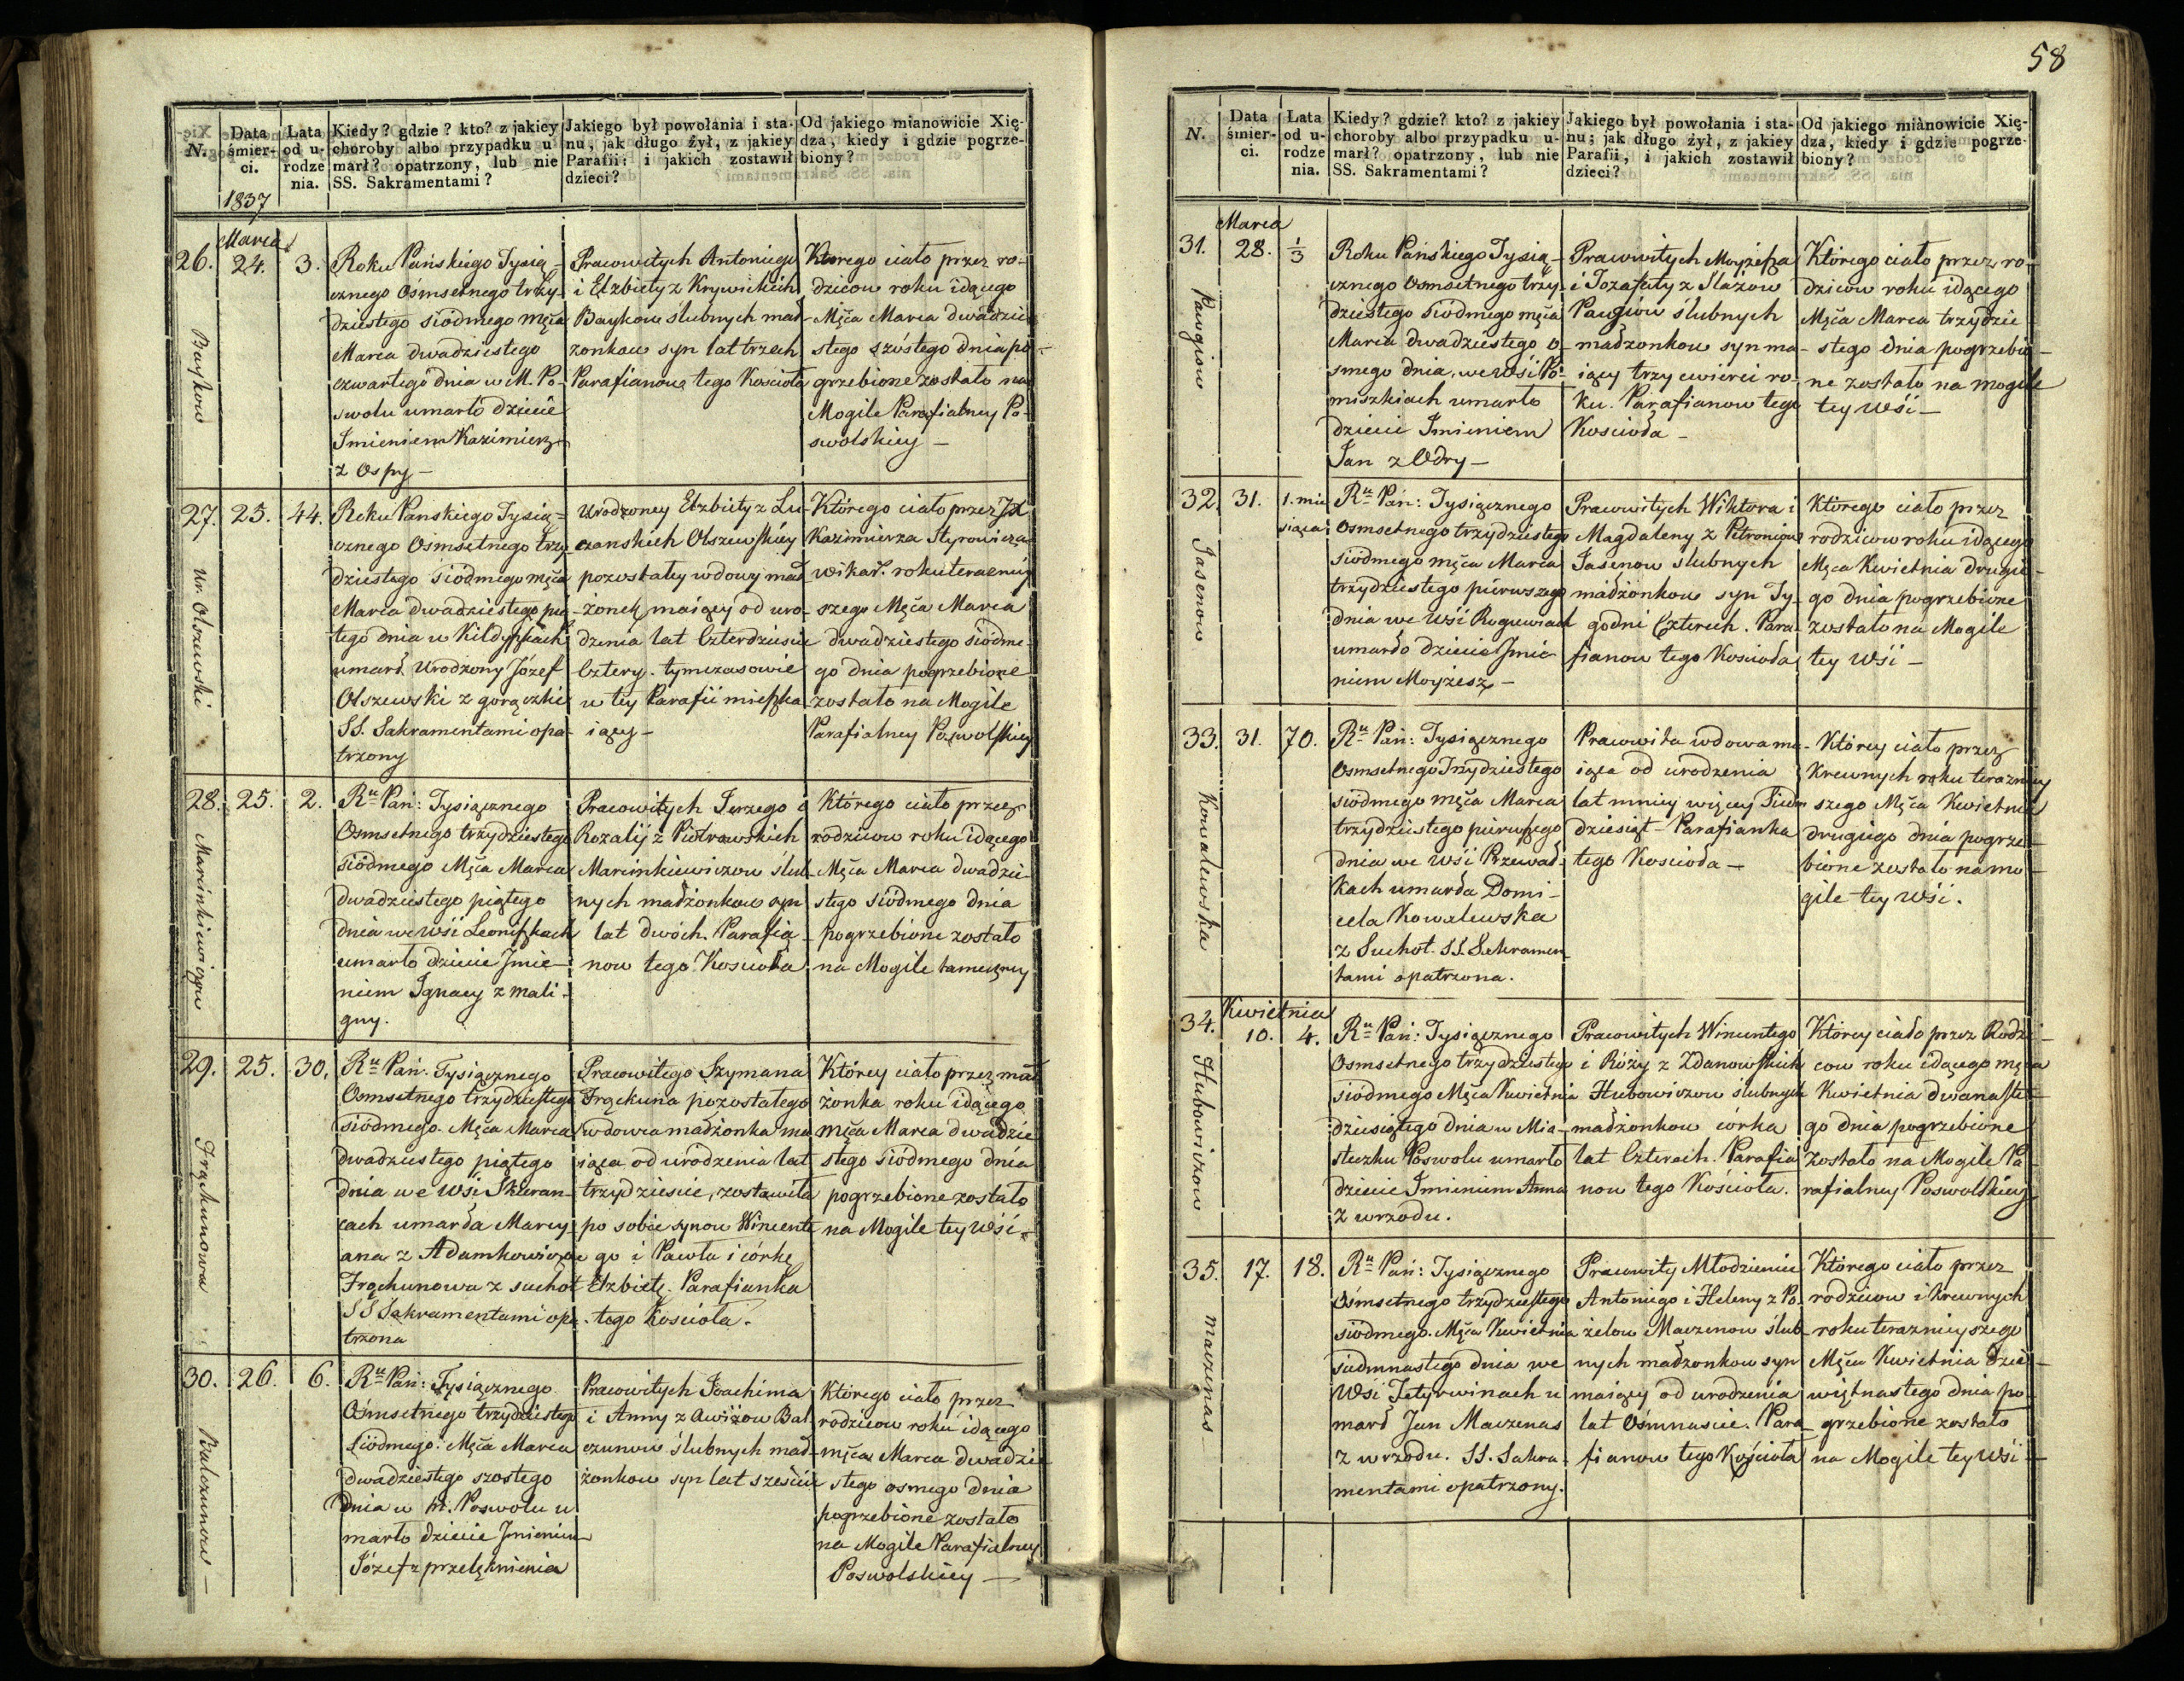 58
N.
Data śmier- ci.
Lata od u- rodze nia.
Kiedy? gdzie? kto? z jakiey
choroby albo przypadku u-
marł? opatrzony, lub nie
SS. Sakramentami?
Jakiego był powołania i sta-
nu, jak długo żył, z jakiey
Parafii: i jakich zostawił
dzieci?
Od jakiego mianowicie Xię-
dza, kiedy i gdzie pogrze-
biony?
1837
Marca
26. 24. 3.
Roku Pańskiego Tysią-
cznego Osmsetnego trzy-
dziestego siódmego męca
Marca dwadziestego
czwartego dnia w M. Po-
swolu umarło dziecie
Imieniem Kazimierz
z Ospy —
Pracowitych Antoniego
i Elzbiety z Krywickich
Baykow slubnych mał-
zonkow syn lat trzech
Parafianow tego Kościoła
Ktorego ciało przez ro-
dzicow roku idącego
Męca Marca dwadzie
stego szóstego dnia po-
grzebione zostało na
Mogile Parafialney Po-
swolskiey —
27. 25. 44.
Ur. Olszewski
Roku Panskiego Tysią=
cznego Osmsetnego trzy
dziestego siodmego męca
Marca dwadziestego pią-
tego dnia w Kildyszkach
umarł Urodzony Józef
Olszewski z gorączki
SS. Sakramentami opa-
trzony
Urodzoney Elzbiety z Lu-
czanskich Olszewskiey
pozostałey wdowy mał
żonek maiący od uro-
dzenia lat Czterdziescie
Cztery. tymczasowie
w tey Parafii mieszka
iący —
Którego ciało przez JX
Kazimierza Styrowicza
wikar. roku teraźniey
szego Męca Marca
dwadziestego siódme-
go dnia pogrzebione
zostało na Mogile
Parafialney Poswolskiey
28. 25. 2.
Marcinkiewiczow
Ru Pań: Tysiącznego
Osmsetnego trzydziestego
siódmego Męca Marca
dwadziestego piątego
dnia we Wsi Leoniszkach
umarło dziecie Imie-
niem Ignacy z mali-
gny.
Pracowitych Jerzego i
Rozalij z Piotrowskich
Marcinkiewiczow ślub-
nych małżonkow syn
lat dwóch. Parafia-
now tego Kościoła
Którego ciało przez
rodzicow roku idącego
Męca Marca dwadzie-
stego siódmego dnia
pogrzebione zostało
na Mogile tameczney
29. 25. 30.
Ru Pań. Tysiącznego
Osmsetnego trzydziestego
siódmego Męca Marca
dwadziestego piątego
dnia we Wsi Skuran-
cach umarła Marcy-
ana z Adamkowiczow
Frąckunowa z suchot
SS Sakramentami opa-
trzona
Pracowitego Szymana
Frąckuna pozostałego
wdowca małżonka ma
iąca od urodzenia lat
trzydziescie, zostawiła
po sobie synow Wincente
go i Pawła i córkę
Elzbietę. Parafianka
tego Kościoła.
Którey ciało przez mał
żonka roku idącego
męca Marca dwadzie
stego siódmego dnia
pogrzebione zostało
na Mogile tey Wśi.
30. 26. 6.
Balczunow —
Ru Pań: Tysiącznego
Osmsetnego trzydziestego
siódmego: Męca Marca
dwadziestego szostego
dnia w M. Poswolu u
marło dziecie Imieniem
Józef z przelęknienia
Pracowitych Joachima
i Anny z Awiżow Bal
czunow ślubnych mał-
żonkow syn lat sześciu
Którego ciało przez
rodzicow roku idącego
męca Marca dwadzie
stego osmego dnia
pogrzebione zostało
na Mogile Parafialney
Poswolskiey —
N.
Data śmier- ci.
Lata od u- rodze nia.
Kiedy? gdzie? kto? z jakiey
choroby albo przypadku u-
marł? opatrzony, lub nie
SS. Sakramentami?
Jakiego był powołania i sta-
nu; jak długo żył, z jakiey
Parafii, i jakich zostawił
dzieci?
Od jakiego mianowicie Xię-
dza, kiedy i gdzie pogrze-
biony?
Marca
31. 28. 1/3
Roku Pańskiego Tysią-
cznego Osmsetnego trzy-
dziestego siódmego męca
Marca dwadziestego o-
smego dnia, we Wśi Po-
miszkiach umarło
dziecie Imieniem
Jan z Odry —
Pracowitych Moyżesza
i Jozafaty z Slażow
ślubnych
małżonkow syn ma-
iący trzy cwierci ro-
ku. Parafianow tego
Kościoła —
Którego ciało przez ro-
dzicow roku idącego
Męca Marca trzydzie
stego dnia pogrzebio-
ne zostało na mogile
tey Wśi —
32. 31. 1. mie
siąca
Jasenow
Ru Pań: Tysiącznego
Osmsetnego trzydziestego
siódmego męca Marca
trzydziestego pierwszego
dnia we Wśi Roguwiach
umarło dziecie Imie-
niem Moyżesz —
Pracowitych Wiktora i
Magdaleny z Petroniow
Jasenow slubnych
małżonkow syn Ty-
godni Czterech. Para-
fianow tego Kościoła
Którego ciało przez
rodzicow roku idącego
Męca Kwietnia drugie-
go dnia pogrzebione
zostało na Mogile
tey Wśi —
33. 31. 70.
Kowalewska
Ru Pań: Tysiącznego
Osmsetnego Trzydziestego
siódmego męca Marca
trzydziestego pierwszego
dnia we wśi Przewał-
kach umarła Domi-
cela Kowalewska
z Suchot. SS. Sakramen-
tami opatrzona.
Pracowita wdowa ma-
iąca od urodzenia
lat mniey więcey Siedm
dziesiąt - Parafianka
tego Kościoła —
Którey ciało przez
Krewnych roku teraźniey
szego Męca Kwietnia
drugiego dnia pogrze-
bione zostało na mo-
gile tey Wśi.
Kwietnia
34. 10. 4.
Hubowiczow
Ru Pań: Tysiącznego
Osmsetnego trzydziestego
siódmego Męca Kwietnia
dziesiątego dnia w Mia-
steczku Poswolu umarło
dziecie Imieniem Anna
z wrzodu.
Pracowitych Wincentego
i Róży z Zdanowskich
Hubowiczow ślubnych
małżonkow córka
lat Czterech. Parafia
now tego Kościoła.
Którey ciało przez Rodzi-
cow roku idącego męca
Kwietnia dwunaste-
go dnia pogrzebione
zostało na Mogile Pa-
rafialney Poswolskiey
35. 17. 18.
Maczenas
Ru Pań: Tysiącznego
Osmsetnego trzydziestego
siódmego. Męca Kwietnia
siedmnastego dnia we
Wśi Jetyrwinach u
marł Jan Maczenas
z wrzodu. SS. Sakra-
mentami opatrzony.
Pracowity Młodzieniec
Antoniego i Heleny z Po-
żelow Maczenow ślub-
nych małżonkow syn
maiący od urodzenia
lat Ośmnascie. Para-
fianow tego Kościoła
Którego ciało przez
rodzicow i krewnych
roku teraznieyszego
Męca Kwietnia dzie-
więtnastego dnia po-
grzebione zostało
na Mogile tey Wśi —